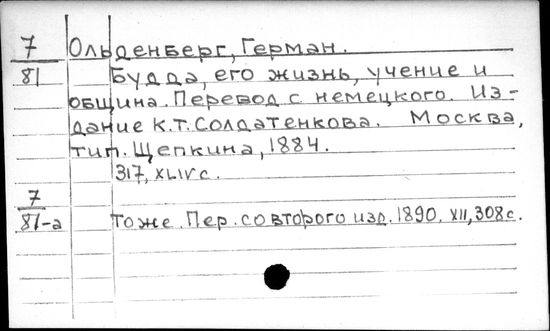 7 Ольденберг, Герман.
81 Будда, его жизнь, учение и
община. Перевод с немецкого. Из-
дание К.Т.Солдатенкова. Москва,
тип. Щепкина, 1884.
317, XLIV с.
7
81-а То же. Пер. со второго изд. 1890. XII, 308 с.